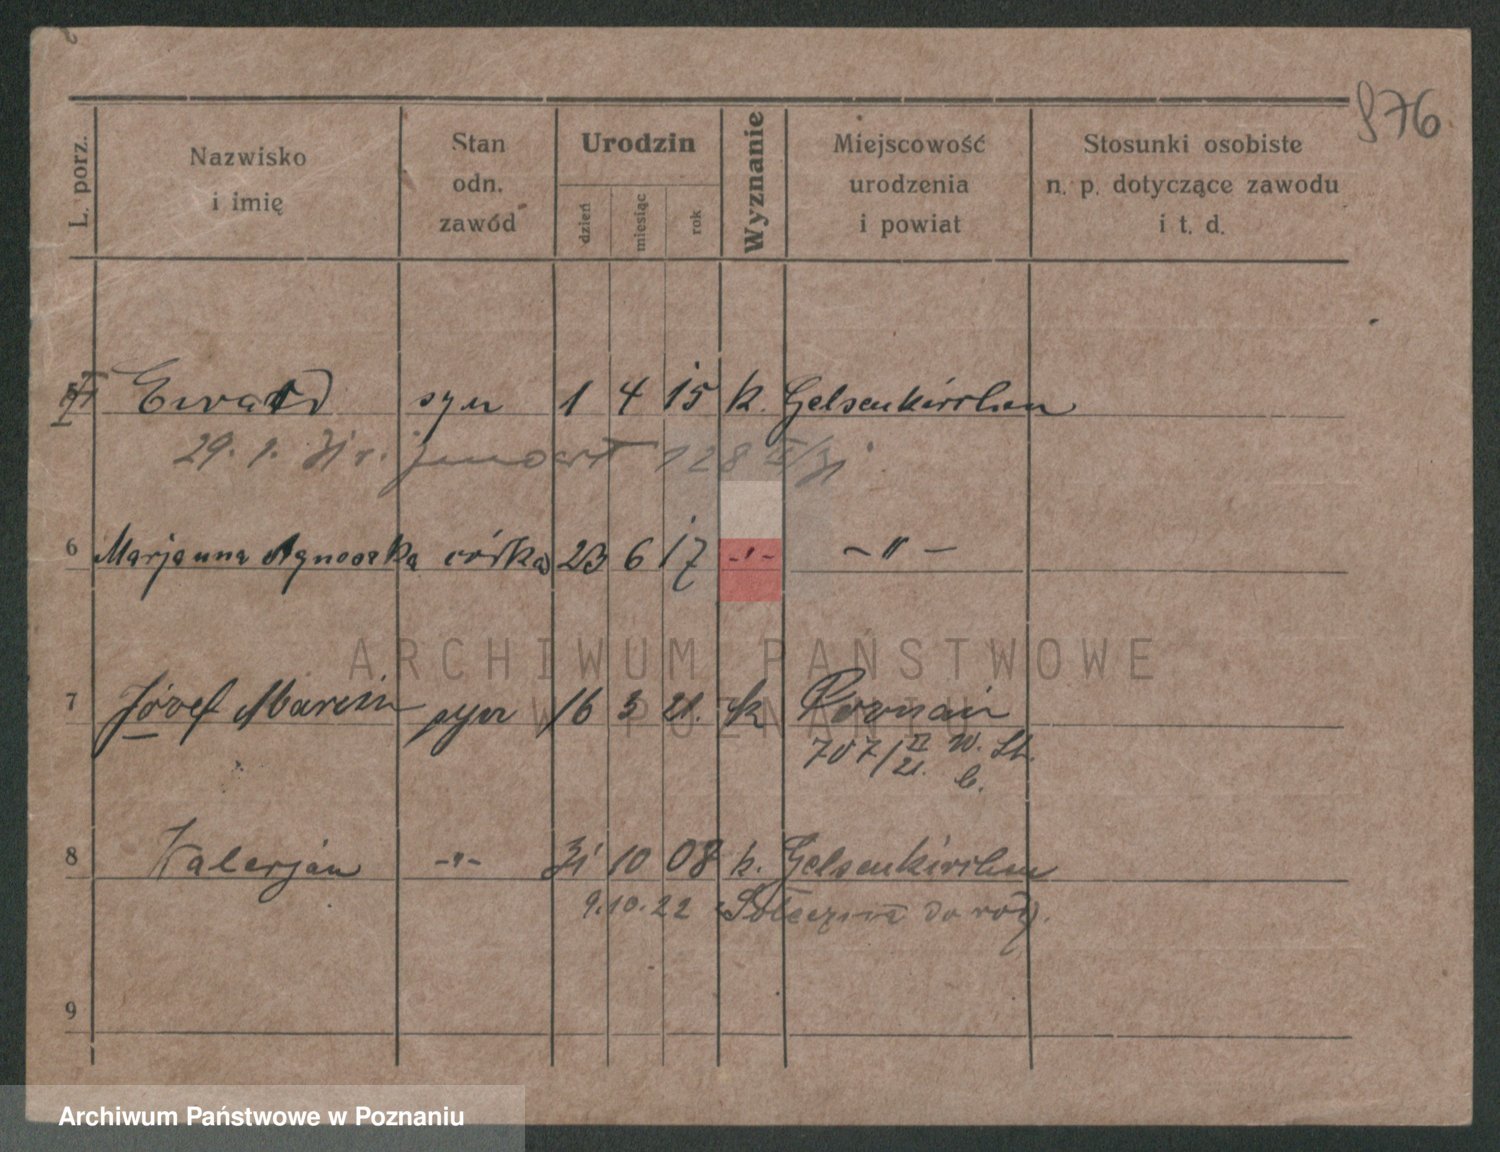 976
L. porz. Nazwisko i imię Stan odn. zawód Urodzin dzień miesiąc rok Wyznanie Miejscowość urodzenia i powiat Stosunki osobiste n. p. dotyczące zawodu i t. d.
Ewald syn 1 4 15 k. Gelsenkirchen
29. 1. 31 r. 128 II/31
6 Marjanna Agnoszka córka 23 6 17 -"- -"-
7 Józef Marcin syn 16 3 21. k Poznań
707/II 21. W. St. C.
8 Walerjan -"- 31 10 08 k. Gelsenkirchen
9.10.22 do rodz.
9
ARCHIWUM PAŃSTWOWE
W POZNANIU
Archiwum Państwowe w Poznaniu